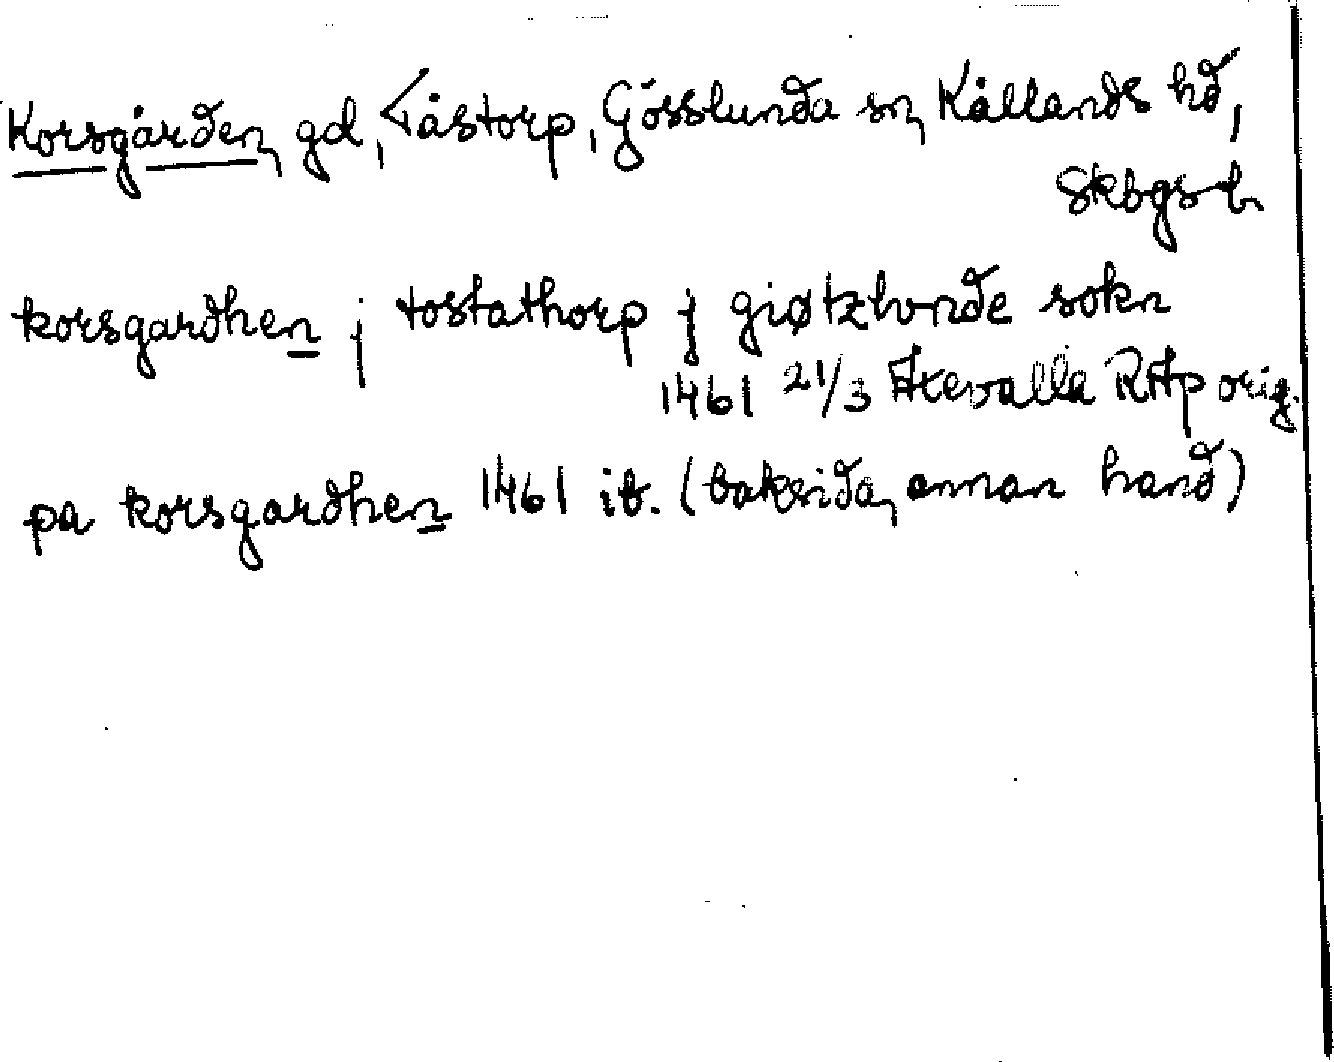 Korsgården, gd, Tåstorp, Gösslunda sn, Kållands hd,
Skbgs l.
korsgardhen j tostathorp j giøtzlvnde sokn
1461 21/3 Axevalla RAp orig.
pa korsgardhen 1461 ib. (baksida, annan hand)